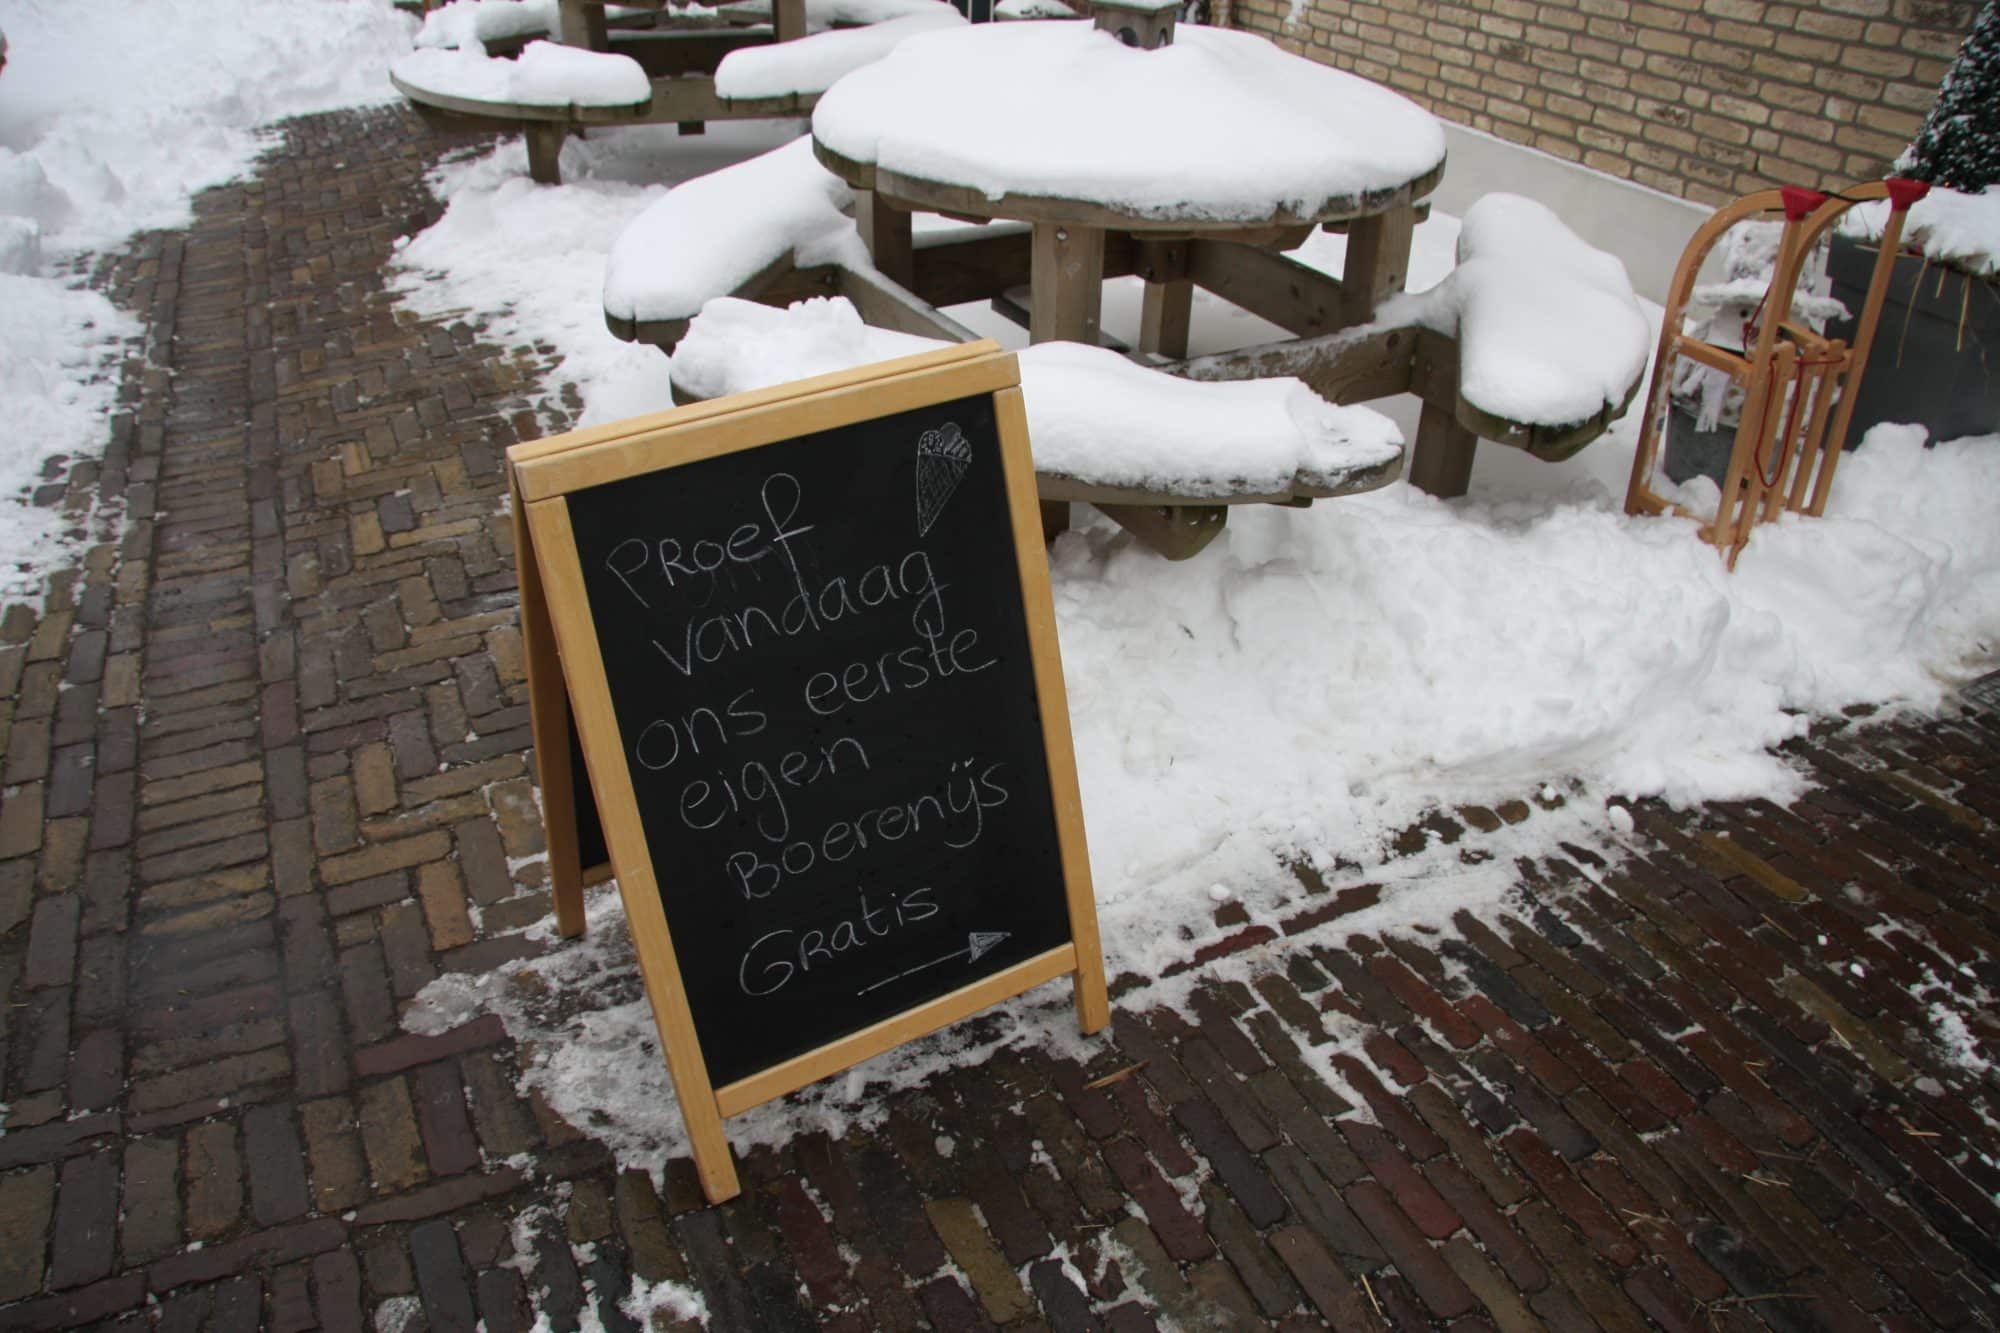 Proef
vandaag
ons eerste
eigen
Boerenijs
Gratis